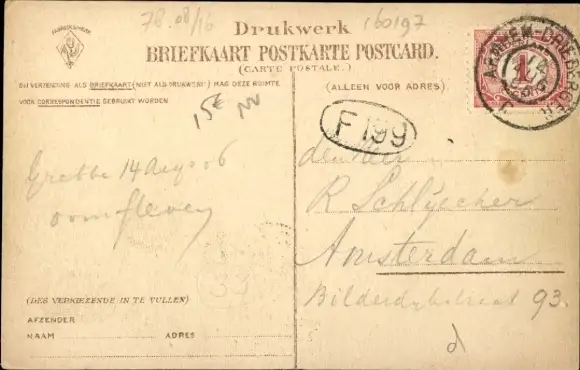 78.08/16
160197
Drukwerk
BRIEFKAART POSTKARTE POSTCARD.
(CARTE POSTALE.)
BIJ VERZENDING ALS BRIEFKAART (NIET ALS DRUKWERK) MAG DEZE RUIMTE
VOOR CORRESPONDENTIE GEBRUIKT WORDEN
(ALLEEN VOOR ADRES)
ARNHEM-DRIEBERGEN
1
15€
F 199
Grebbe 14 Aug 06
den Heer
R Schlijecher
Amsterdam
Bilderdijkstraat 93.
(DES VERKIEZENDE IN TE VULLEN)
AFZENDER
NAAM
ADRES